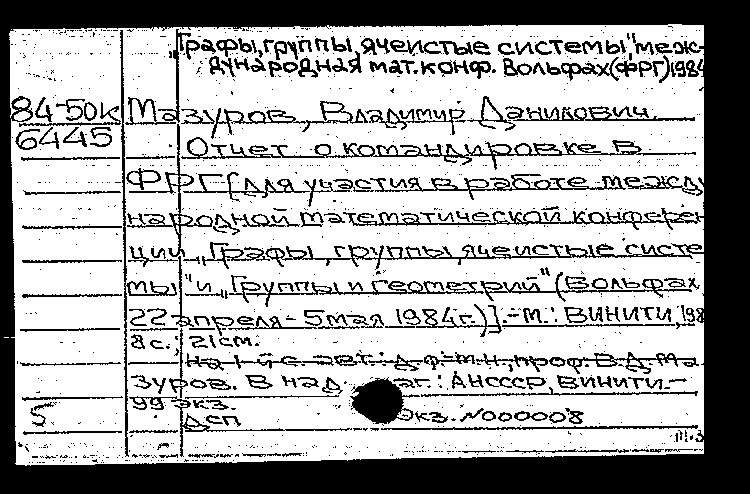 „Графы, группы, ячеистые системы," меж-
дународная мат. конф. Вольфах (ФРГ) 1984
84-50к Мазуров, Владимир Данилович.
6445 Отчет о командировке в
ФРГ [для участия в работе межд
народной математической конферен
ции „Графы, группы, ячеистые систе
мы" и „Группы и геометрий" (Вольфах
22 апреля - 5 мая 1984 г.)]. - М.: ВИНИТИ, 198
8 с.; 21 см.
На 1-й с. авт.: д. ф.-м. н., проф. В. Д. Ма
зуров. В над : АН СССР, ВИНИТИ. -
99 экз.
5 ДСП экз. №000008